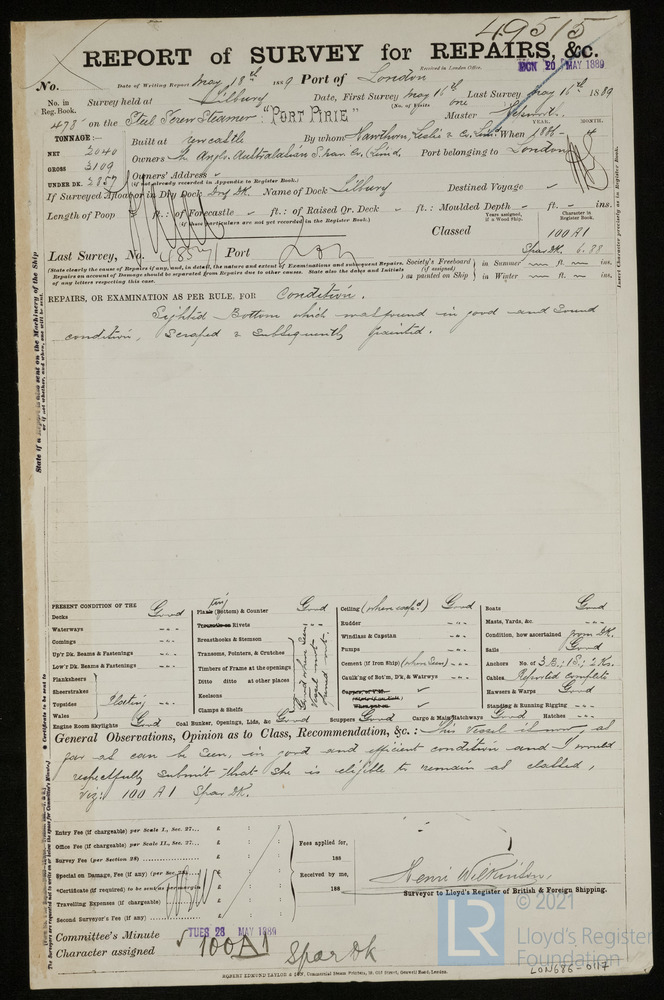 49515
REPORT of SURVEY for REPAIRS, &c.
Received in London Office,
MON 20 MAY 1889
No. Date of Writing Report May 18th 1889 Port of London
No. in Reg. Book. Survey held at Tilbury Date, First Survey May 16th Last Survey May 16th 1889
(No. of Visits one
478 on the Steel Screw Steamer "PORT PIRIE" Master
TONNAGE:— YEAR. MONTH.
NET 2040 Built at Newcastle By whom Hawthorn, Leslie & Co. Limd When 1886 - 4
GROSS 3109 Owners The Anglo Australasian S. Nav. Co. Limd. Port belonging to London
UNDER DK. 2857 Owners' Address
(if not already recorded in Appendix to Register Book.)
If Surveyed Afloat or in Dry Dock Dry Dk. Name of Dock Tilbury Destined Voyage
Length of Poop ft.: of Forecastle ft.: of Raised Qr. Deck ft.: Moulded Depth ft. ins.
(if these particulars are not yet recorded in the Register Book.)
Years assigned, if a Wood Ship.
Character in Register Book.
Classed 100 A1
Spar Dk. 6.88
Last Survey, No. 48571 Port Lon
(State clearly the cause of Repairs if any, and, in detail, the nature and extent of Examinations and subsequent Repairs.
Repairs on account of Damage should be separated from Repairs due to other causes. State also the dates and Initials
of any letters respecting this case.
Society's Freeboard (if assigned) as painted on Ship
in Summer ft. ins.
in Winter ft. ins.
REPAIRS, OR EXAMINATION AS PER RULE, FOR Condition.
Sighted Bottom which was found in good and sound
condition, scraped & subsequently painted.
PRESENT CONDITION OF THE
Decks Good
Waterways
Comings
Up'r Dk. Beams & Fastenings
Low'r Dk. Beams & Fastenings
Planksheers
Sheerstrakes
Topsides Plating
Wales
Engine Room Skylights Good
Plating (Bottom) & Counter Good
Treenails or Rivets
Breasthooks & Stemson
Transoms, Pointers, & Crutches
Timbers of Frame at the openings
Ditto ditto at other places
Keelsons
Clamps & Shelfs
Good where seen
Coal Bunker, Openings, Lids, &c. Good
Ceiling (where exap'd) Good
Rudder
Windlass & Capstan
Pumps
Cement (if from Ship) (where seen)
Caulk'ng of Bot'm, D'k, & Watrwys
Scuppers Good Cargo & Main Hatchways Good Hatches
Boats Good
Masts, Yards, &c.
Condition, how ascertained from Dk.
Sails Good
Anchors No. of 3 B.; 1 S.; 2 Ks.
Cables Reported complete
Hawsers & Warps Good
Standing & Running Rigging
General Observations, Opinion as to Class, Recommendation, &c.: This Vessel is now, as
far as can be seen, in good and efficient condition and I would
respectfully submit that she is eligible to remain as classed,
viz: 100 A1 Spar Dk.
Entry Fee (if chargeable) per Scale I., Sec. 27... £ : :
Office Fee (if chargeable) per Scale II., Sec. 27... £ : :
Survey Fee (per Section 28) £ : :
Special on Damage, Fee (if any) (per Sec. 28) £ : :
*Certificate (if required) to be sent as per margin
Travelling Expenses (if chargeable) £ : :
Second Surveyor's Fee (if any) £ : :
Fees applied for,
188
Received by me,
188
Henri Wilkinson,
Surveyor to Lloyd's Register of British & Foreign Shipping.
Committee's Minute TUES 28 MAY 1889
Character assigned 100A1 Spar Dk
ROBERT EDMUND TAYLOR & SON, Commercial Steam Printers, 19, Old Street, Goswell Road, London.
LR
© 2021
Lloyd's Register
Foundation
LON686-0117